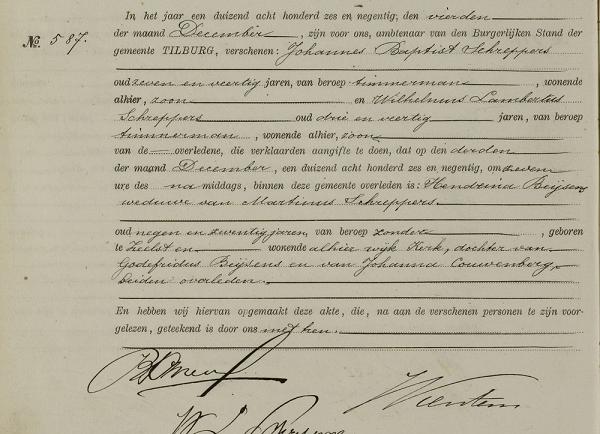 In het jaar een duizend acht honderd zes en negentig, den vierden
der maand December, zijn voor ons, ambtenaar van den Burgerlijken Stand der
No. 587.
gemeente TILBURG, verschenen: Johannes Baptist Schreppers
oud zeven en veertig jaren, van beroep timmerman, wonende
alhier, zoon en Wilhelmus Lambertus
Schreppers oud drie en veertig jaren, van beroep
timmerman, wonende alhier, zoon
van de overledene, die verklaarden aangifte te doen, dat op den derden
der maand December, een duizend acht honderd zes en negentig, om zeven
ure des na middags, binnen deze gemeente overleden is: Hendrina Beijsens
weduwe van Martinus Schreppers
oud negen en zeventig jaren, van beroep zonder, geboren
te Zeelst en wonende alhier wijk Kerk, dochter van
Godefridus Beijsens en van Johanna Couwenberg,
beiden overleden.
En hebben wij hiervan opgemaakt deze akte, die, na aan de verschenen personen te zijn voor-
gelezen, geteekend is door ons met hen.